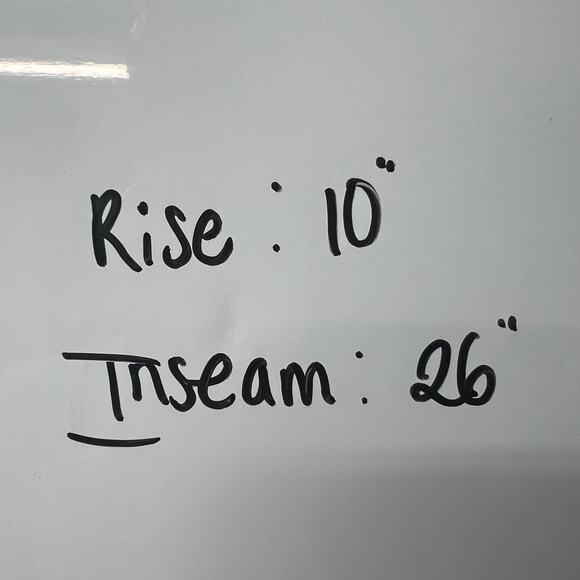 Rise : 10"
Inseam : 26"